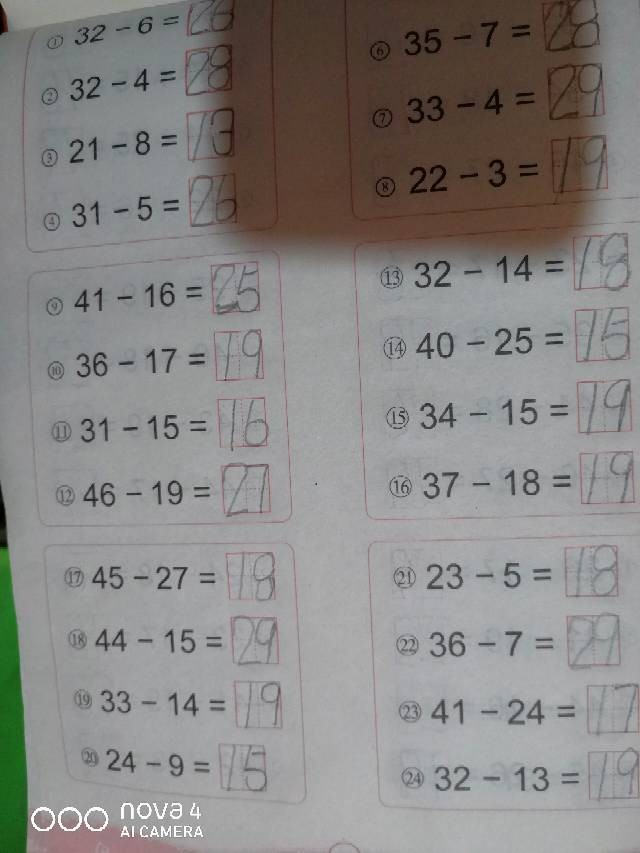 ① 32 - 6 = 26
② 32 - 4 = 28
③ 21 - 8 = 13
④ 31 - 5 = 26
⑥ 35 - 7 = 28
⑦ 33 - 4 = 29
⑧ 22 - 3 = 19
⑨ 41 - 16 = 25
⑩ 36 - 17 = 19
⑪ 31 - 15 = 16
⑫ 46 - 19 = 27
⑬ 32 - 14 = 18
⑭ 40 - 25 = 15
⑮ 34 - 15 = 19
⑯ 37 - 18 = 19
⑰ 45 - 27 = 18
⑱ 44 - 15 = 29
⑲ 33 - 14 = 19
⑳ 24 - 9 = 15
㉑ 23 - 5 = 18
㉒ 36 - 7 = 29
㉓ 41 - 24 = 17
㉔ 32 - 13 = 19
nova 4
AI CAMERA